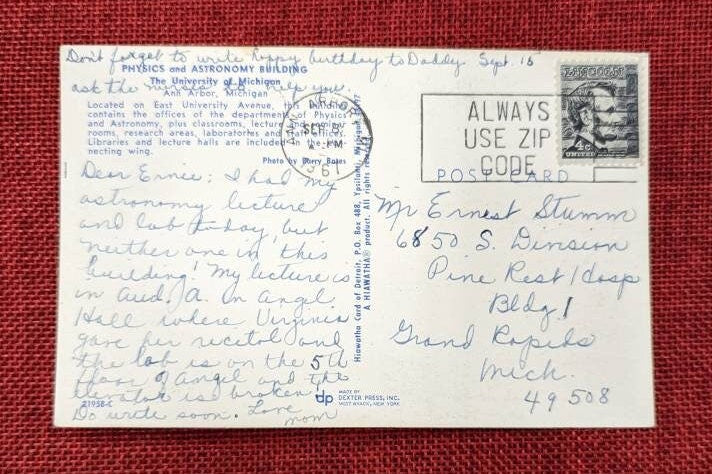 Don't forget to write happy birthday to Daddy. Sept. 15
ask the nurses to help you.
PHYSICS and ASTRONOMY BUILDING
The University of Michigan
Ann Arbor, Michigan
Located on East University Avenue, this building
contains the offices of the department of Physics
and Astronomy, plus classrooms, lecture and seminar
rooms, research areas, laboratories and staff offices.
Libraries and lecture halls are included in the connecting wing.
Photo by Barry Bates
Dear Ernie: I had my
astronomy lecture
and lab today, but
neither one in this
building! My lecture is
in Aud. A. In Angel
Hall where Virginia
gave her recital and
the lab is on the 5th
floor of Angel and the
elevator is broken!
Do write soon. Love
mom
21958-C
Hiawatha Card of Detroit, P.O. Box 488, Ypsilanti, Michigan
A HIAWATHA® product. All rights
dp
MADE BY
DEXTER PRESS, INC.
WEST NYACK, NEW YORK
ANN ARBOR
SEP
PM
ALWAYS
USE ZIP
CODE
LINCOLN
4c
UNITED
POST CARD
Mr Ernest Stumm
6850 S. Division
Pine Rest Hosp
Bldg 1
Grand Rapids
Mich.
49508